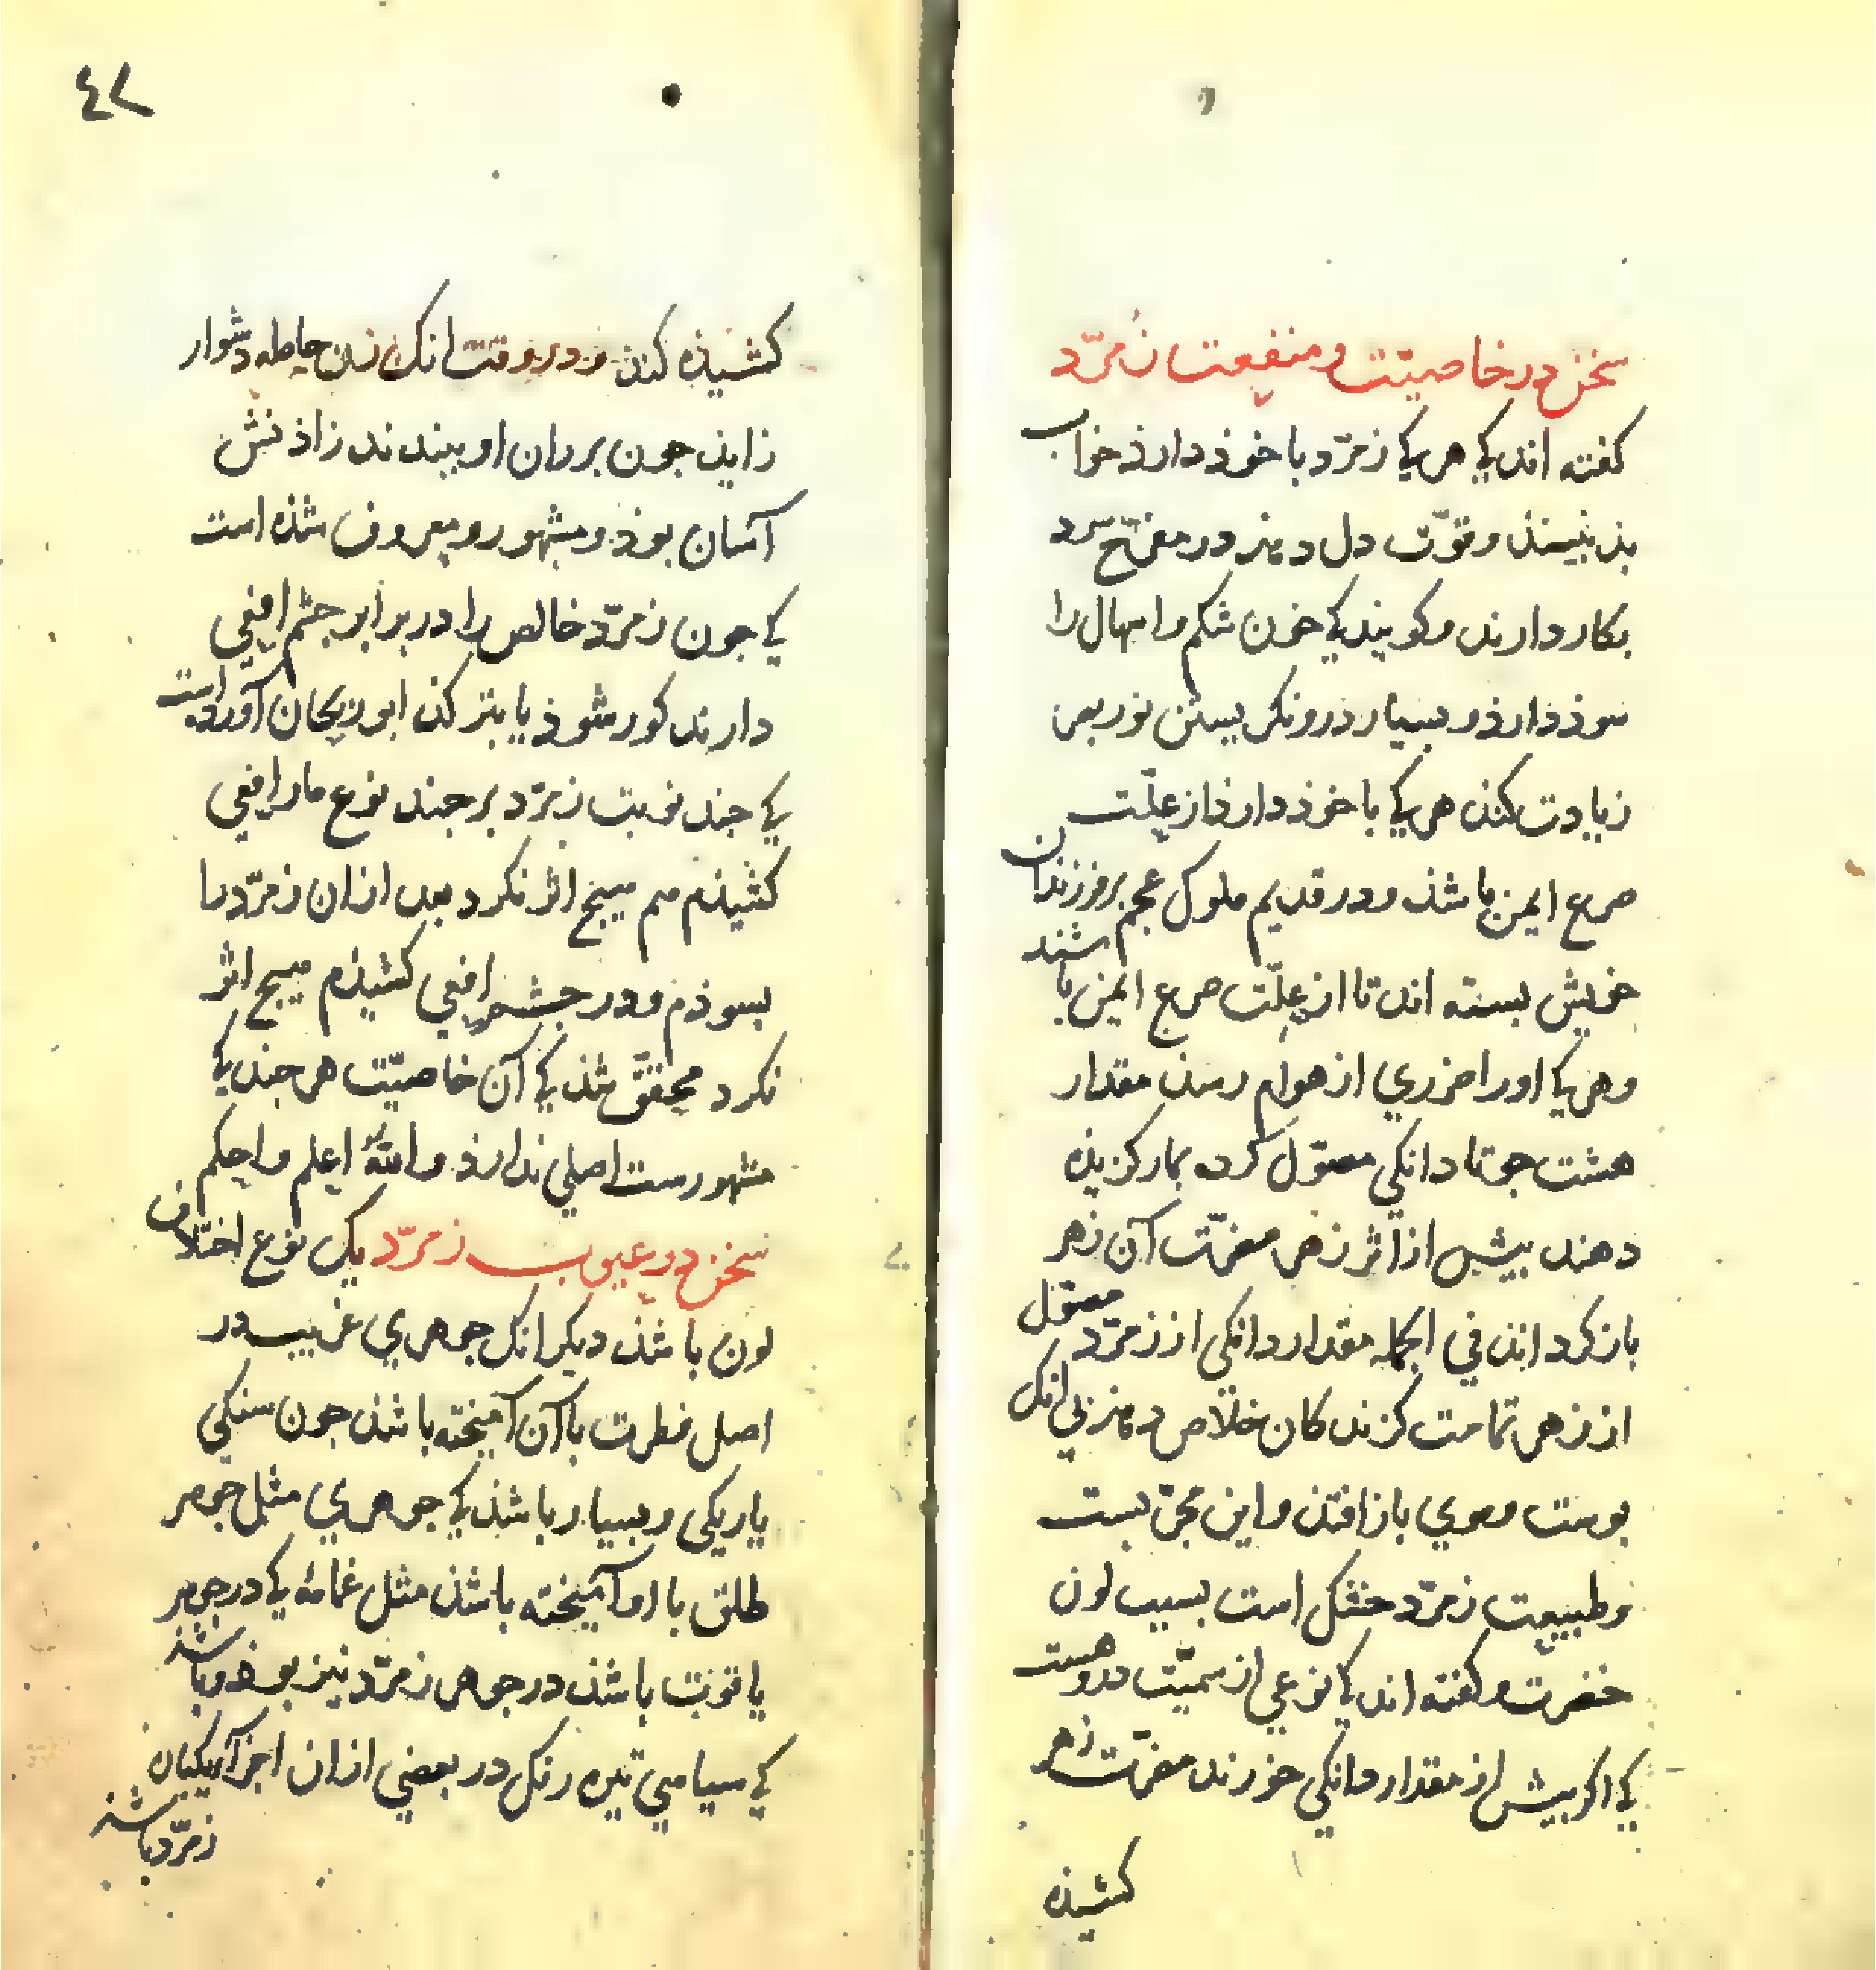 سخن در خاصیّت و منفعت زُمرّد
کفته اند کی هر کی زمرّد با خوذ دارذ خواب
بذ نبیند و قوّت دل دهد و در مفرّح سرد
بکار دارند و کویند کی خون شکم و اسهال را
سوذ دارذ و بسیار درو نکریستن نور بصر
زیادت کند هر کی با خوذ دارذ از علّت
صرع ایمن باشذ و در قدیم ملوک عجم بر فرزندان
خویش بسته اند تا از علّت صرع ایمن باشند
و هر کی اورا ضرری از هوام رسذ مقدار
هشت جو تا دانکی مصوّل کرده بمار کزیذه
دهند بیش از اثر زهر مضرّت آن زهر
باز کرداند في الجمله مقدار دانکی از زمرّد مصوّل
از زهر تمامت کزندکان خلاص دهذ بی انک
بوست و موی باز افتذ و این مجرّبست
و طبیعت زمرّد خشک است بسبب لون
خضرت و کفته اند کی نوعی از سمیّت درو هست
کی اکر بیش از مقدار دانکی خورند مضرّت زهر
کشیذه
٤٧
کشیذه کند و در وقت انک زن حامله دشوار
زایذ جون بر ران او بندند زاذنش
آسان بوذ و مشهور و معروف شذه است
کی جون زمرّد خالص را در برابر جشم افعی
دارند کور شوذ یا بترکذ ابو ریحان آورده است
کی جند نوبت زمرّد بر جند نوع مار افعی
کشیذم هم هیج اثر نکرد بعد از ان زمرّد را
بسوذم و در جشم افعی کشیذم هیج اثر
نکرد محقّق شذ کی آن خاصیّت هر جند کی
مشهورست اصلی ندارذ والله اعلم واحکم
سخن در عیوب زمرّد یک نوع اختلاف
لون باشذ دیکر انک جوهری غریب در
اصل فطرت با آن آمیخته باشذ جون سنکی
یا ریکی و بسیار باشذ کی جوهری مثل جوهر
طلق با او آمیخته باشذ مثل غمامهٔ کی در جوهر
یاقوت باشذ در جوهر زمرّد نیز بوذ و باشذ
کی سیاهی تیره رنک در بعضی از ان اجزآ یکپاره
زمرّد باشذ